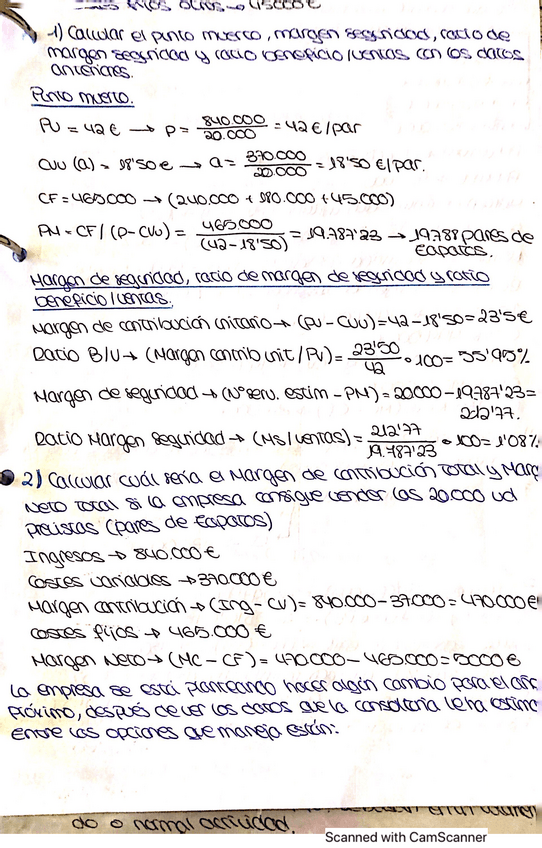 45000€
1) Calcular el punto muerto, margen seguridad, ratio de
margen seguridad y ratio beneficio/ventas con los datos
anteriores.
Punto muerto.
PV = 42€ → P = 840.000 / 20.000 = 42€/par
CVU (a) = 18'50€ → a = 370.000 / 20.000 = 18'50 €/par.
CF = 465000 → (240.000 + 180.000 + 45.000)
PM = CF / (P-CVU) = 465.000 / (42-18'50) = 19.787'23 → 19.788 pares de
zapatos.
Margen de seguridad, ratio de margen de seguridad y ratio
beneficio/ventas.
Margen de contribución unitario → (PV-CVU) = 42-18'50 = 23'5€
Ratio B/V → (Margen contrib unit / PV) = 23'50 / 42 · 100 = 55'95%
Margen de seguridad → (Nº serv. estim - PM) = 20000 - 19.787'23 =
212'77.
Ratio Margen Seguridad → (MS/ventas) = 212'77 / 19.787'23 · 100 = 1'08%
2) Calcular cuál sería el Margen de contribución Total y Marg
Neto Total si la empresa consigue vender las 20.000 ud
previstas (pares de zapatos)
Ingresos → 840.000€
Costes variables → 370000€
Margen contribución → (Ing - CV) = 840.000 - 37.000 = 470000€
costes fijos → 465.000 €
Margen Neto → (MC - CF) = 470.000 - 465.000 = 5000€
La empresa se está planteando hacer algún cambio para el añ
próximo, después de ver los datos que la consultoría le ha estim
entre las opciones que maneja están:
do o normal actividad.
Scanned with CamScanner